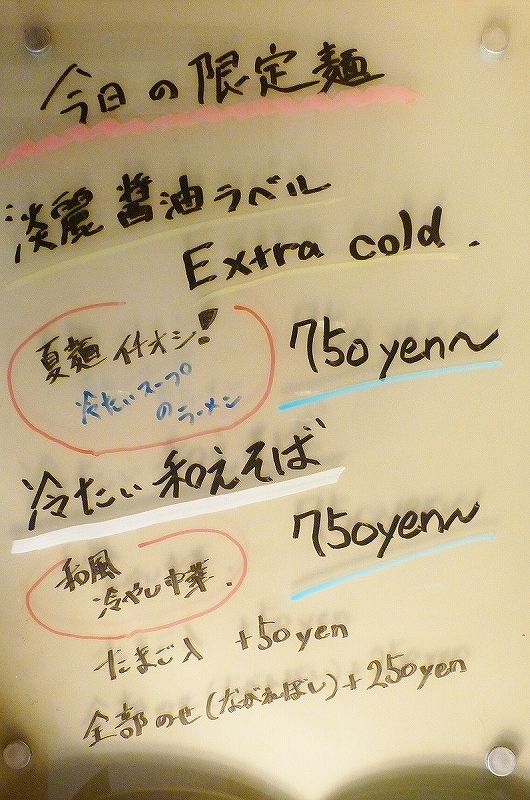 今日の限定麺
淡麗醤油ラベル
Extra cold.
夏麺イチオシ!
冷たいスープ
のラーメン
750yen〜
冷たい和えそば
750yen〜
和風
冷やし中華.
たまご入 +50yen
全部のせ(ながれぼし)+250yen